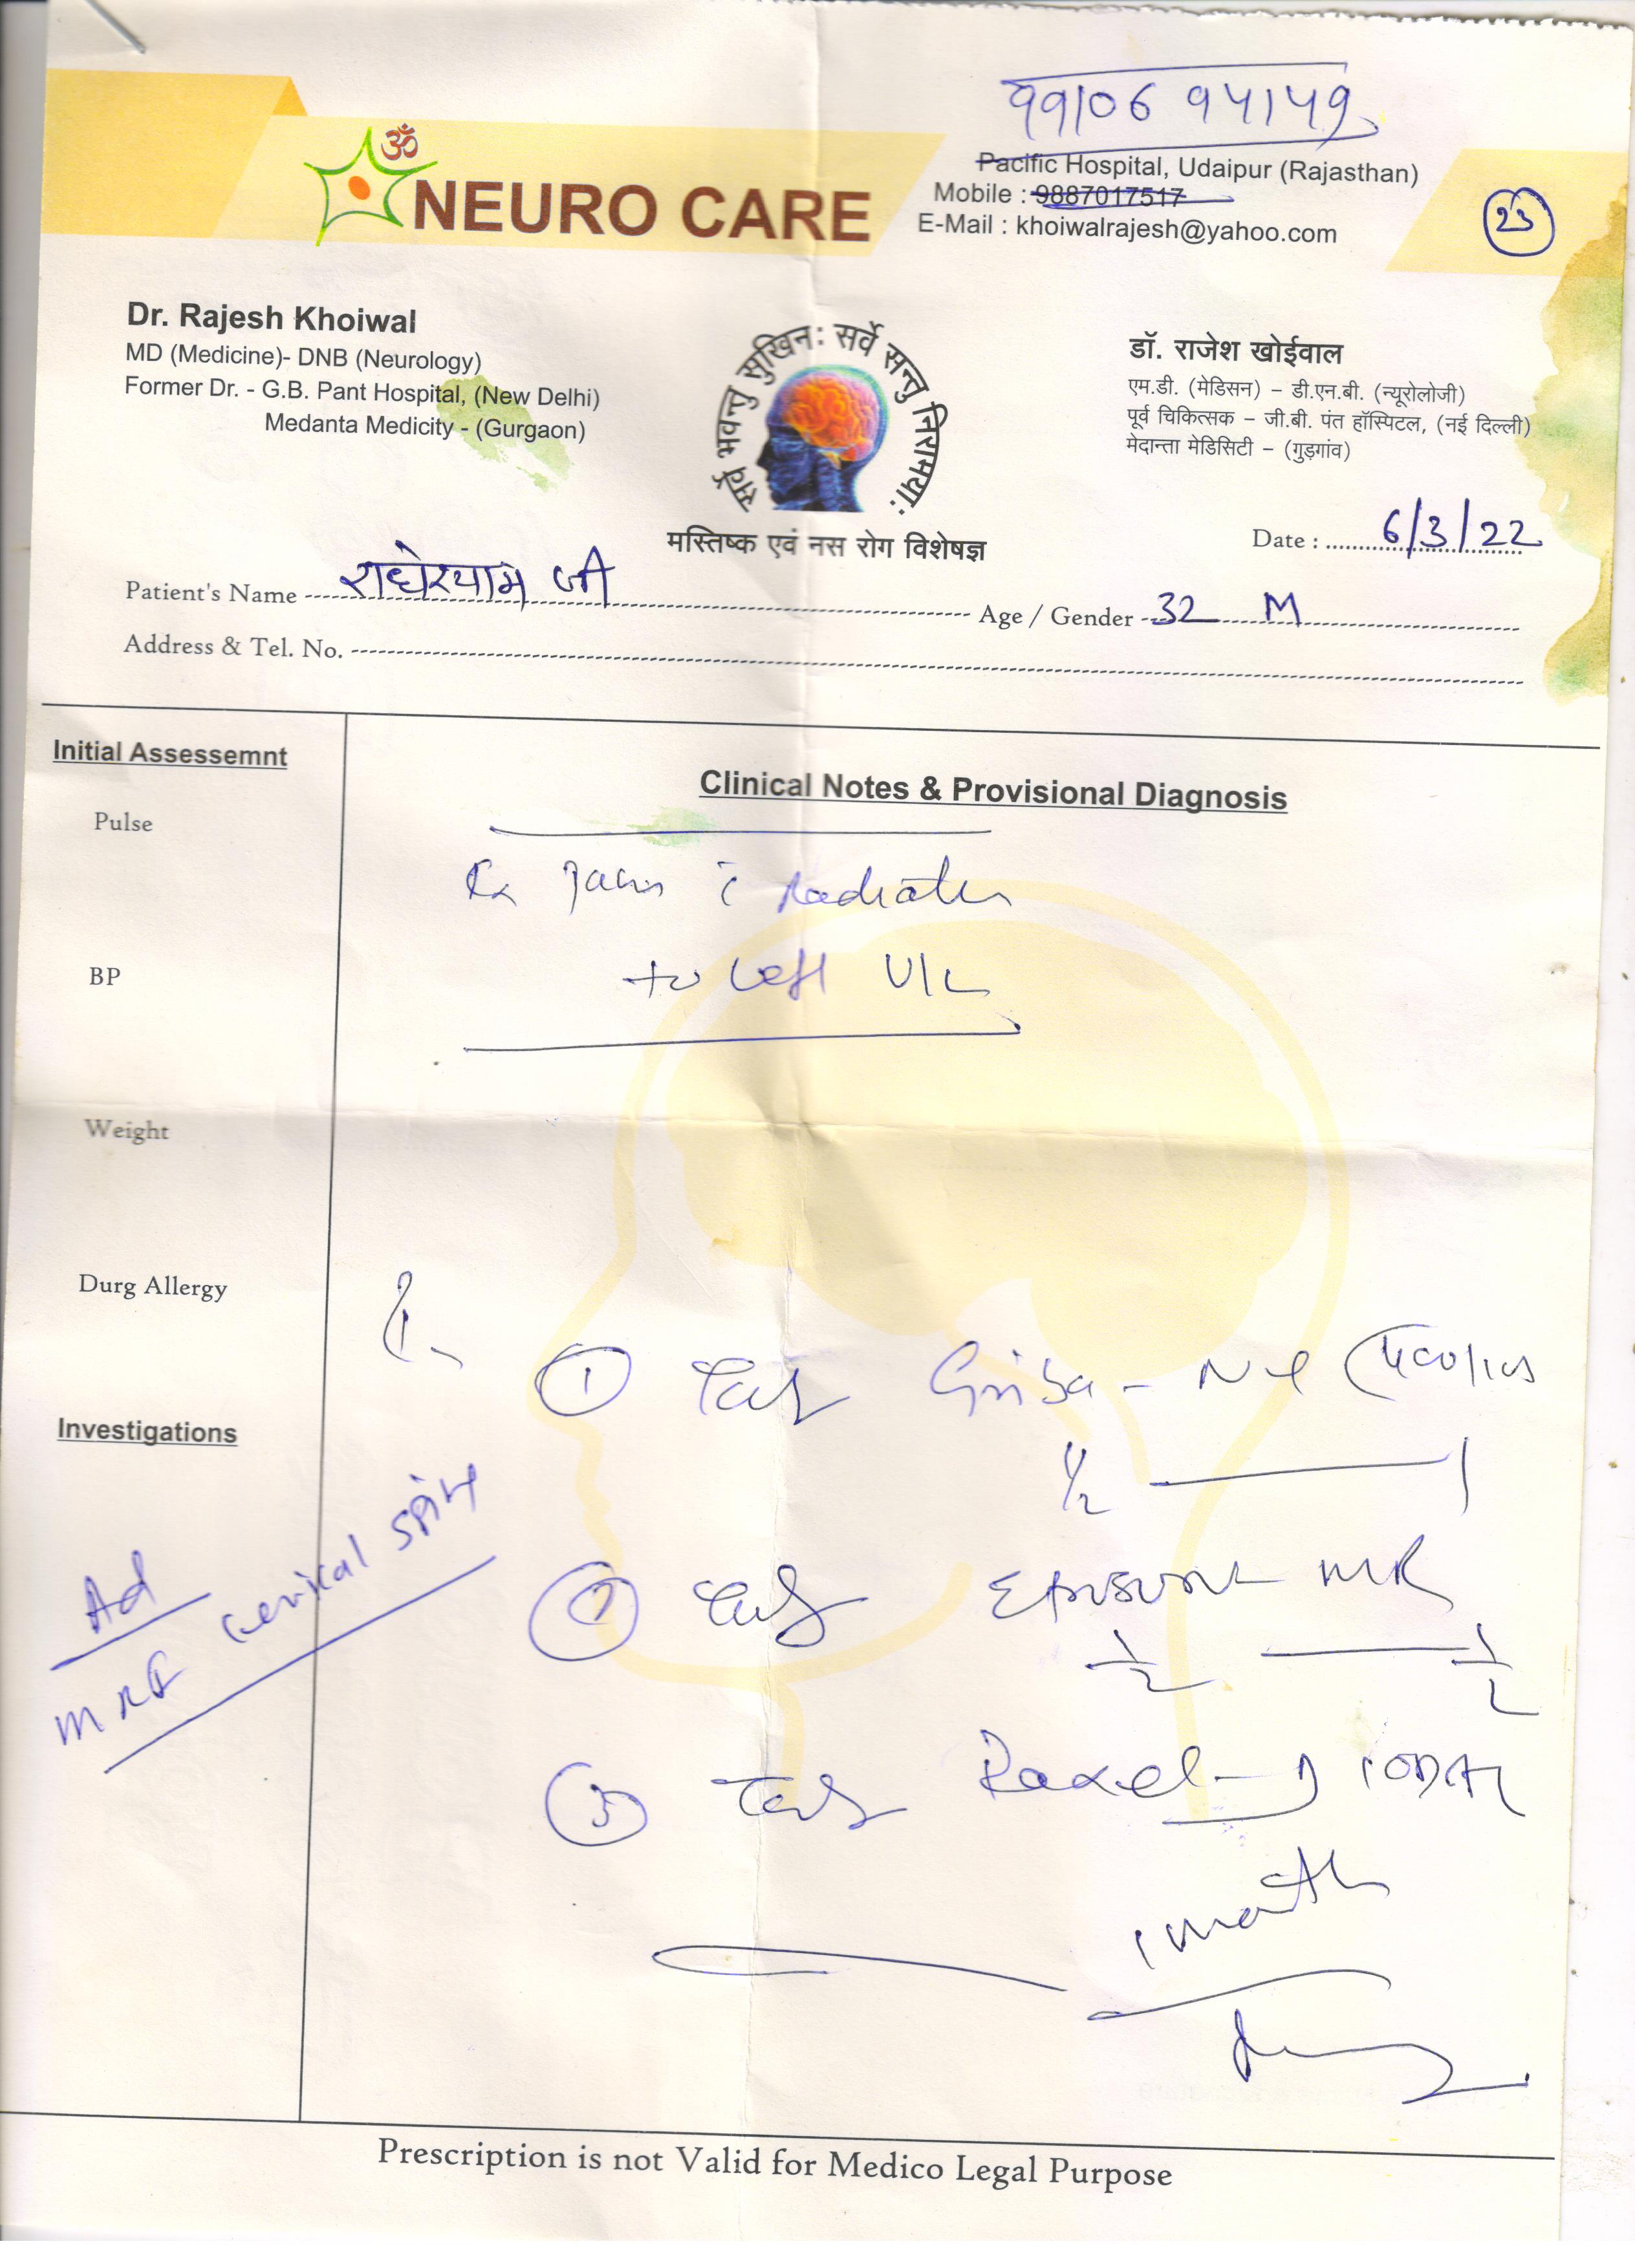 ९९106 94149
ॐ
NEURO CARE
Pacific Hospital, Udaipur (Rajasthan)
Mobile : 9887017517
E-Mail : khoiwalrajesh@yahoo.com
23
Dr. Rajesh Khoiwal
MD (Medicine)- DNB (Neurology)
Former Dr. - G.B. Pant Hospital, (New Delhi)
Medanta Medicity - (Gurgaon)
सर्वे भवन्तु सुखिनः सर्वे सन्तु निरामयाः
मस्तिष्क एवं नस रोग विशेषज्ञ
डॉ. राजेश खोईवाल
एम.डी. (मेडिसन) – डी.एन.बी. (न्यूरोलोजी)
पूर्व चिकित्सक – जी.बी. पंत हॉस्पिटल, (नई दिल्ली)
मेदान्ता मेडिसिटी – (गुड़गांव)
Date : 6/3/22
Patient's Name राधेश्याम जी Age / Gender 32 M
Address & Tel. No.
Initial Assessemnt
Clinical Notes & Provisional Diagnosis
Pulse
pain c̄ radiation
BP
to left U/L
Weight
Durg Allergy
① Tab
1/2 — 1
Investigations
Ad
MRI cervical spine
② Tab MR
1/2 — 1/2
③ Tab
1 month
Prescription is not Valid for Medico Legal Purpose